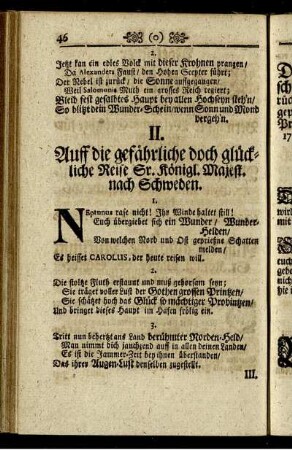 46 (o)
2.
Jetzt kan ein edles Volck mit dieser Krohnen prangen/
Da Alexanders Faust / den Hohen Scepter führt;
Der Nebel ist zurück / die Sonne auffgegangen;
Weil Salomonis Muth / ein grosses Reich regiert;
Bleib fest gesalbtes Haupt bey allen Hochseyn steh'n/
So blitzt dein Wunder-Schein/wenn Sonn und Mond
vergeh'n.
II.
Auff die gefährliche doch glück-
liche Reise Sr. Königl. Majest.
nach Schweden.
1.
Neptunus rase nicht! Ihr Winde haltet still!
Euch übergiebet sich ein Wunder / Wunder-
Helden/
Von welchen Nord und Ost gepriesne Schatten
melden/
Es heisset CAROLUS, der heute reisen will.
2.
Die stoltze Fluth erstaunt und muß gehorsam seyn;
Sie träget voller Lust der Gothen grossen Printzen/
Sie schätzet hoch das Glück so mächtiger Provintzen/
Und bringet dieses Haupt im Hafen frölig ein.
3.
Tritt nun behertzt ans Land berühmter Norden-Held/
Man nimmt dich jauchzend auff in allen deinen Landen/
Es ist die Jammer-Zeit bey ihnen überstanden/
Da ihrer Augen-Lust denselben zugestellt.
III.